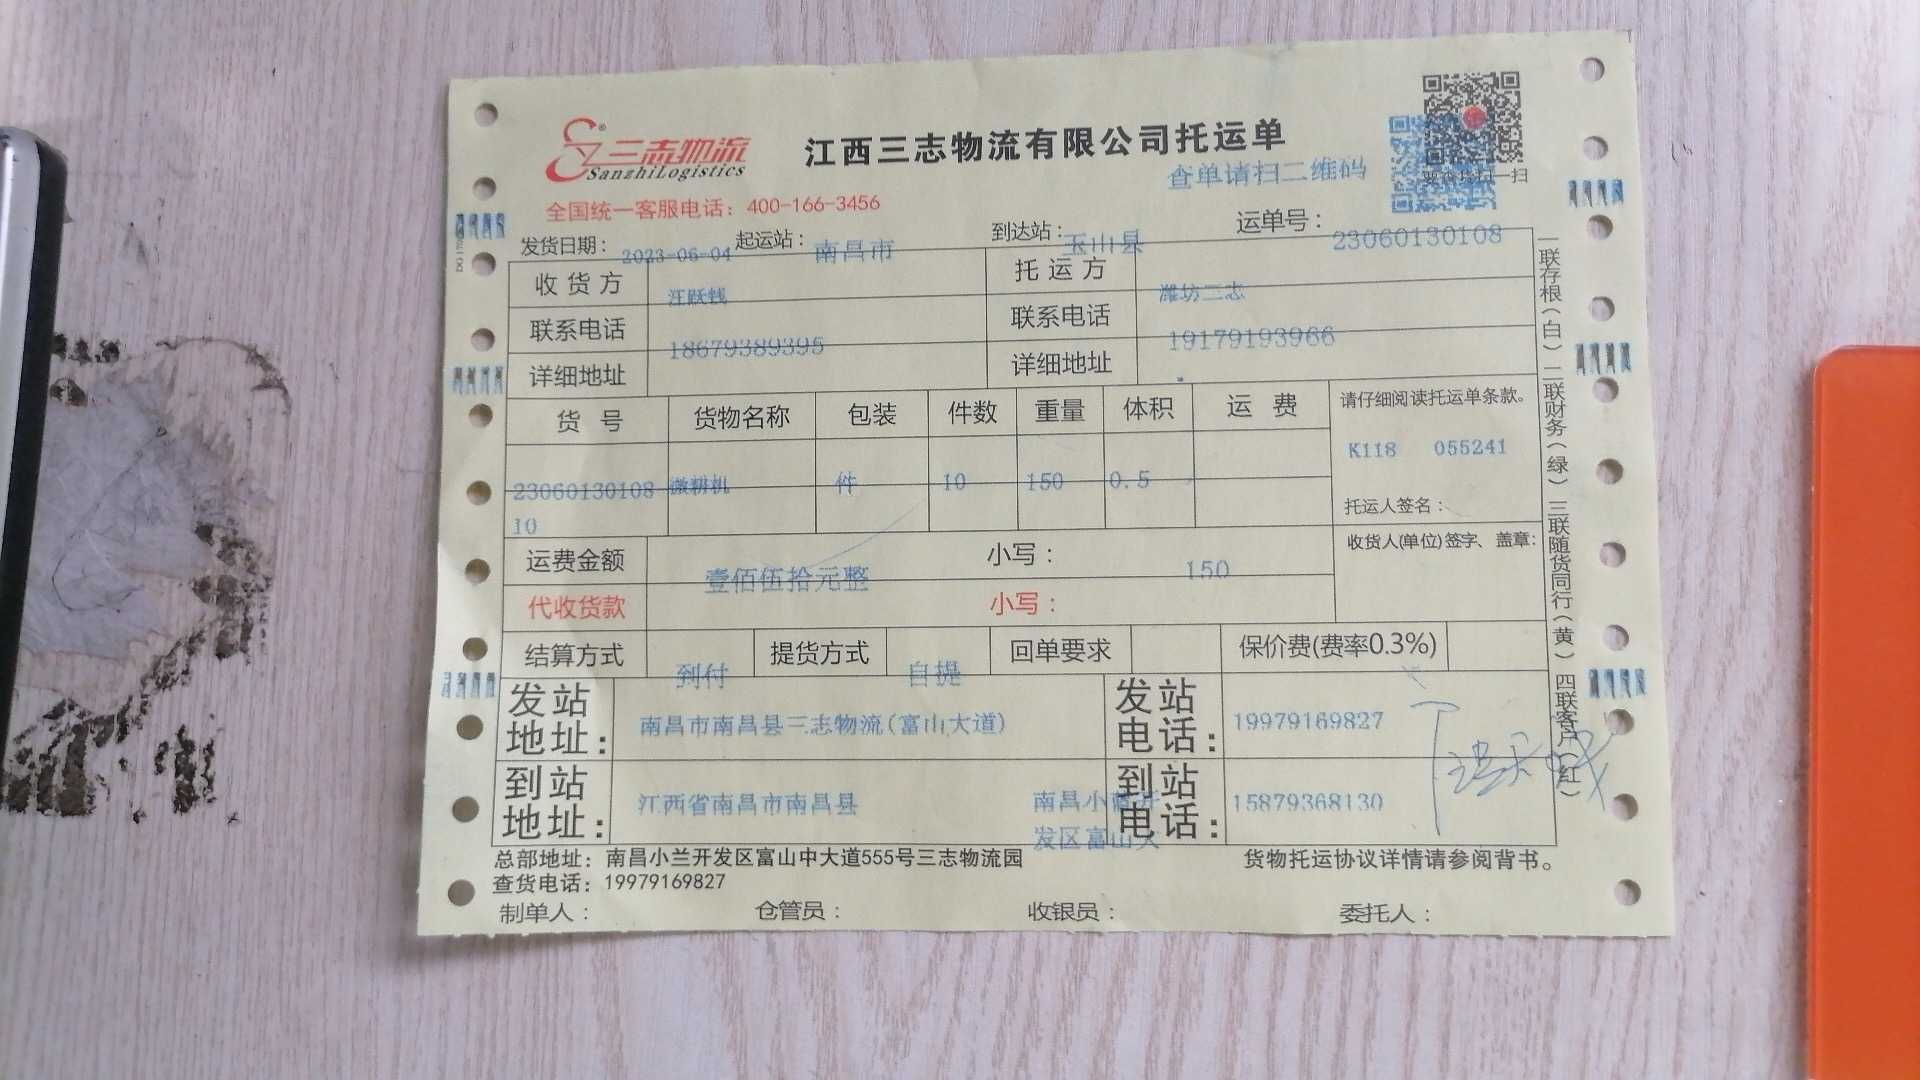 三志物流
SanzhiLogistics
江西三志物流有限公司托运单
查单请扫二维码
全国统一客服电话：400-166-3456
发货日期： 2023-06-04 起运站： 南昌市 到达站： 玉山县 运单号： 23060130108
收货方 汪跃钱 托运方 潍坊三志
联系电话 18679389395 联系电话 19179193966
详细地址 详细地址
货号 货物名称 包装 件数 重量 体积 运费 请仔细阅读托运单条款。
K118 055241
23060130108 微耕机 件 10 150 0.5
10
托运人签名：
运费金额 壹佰伍拾元整 小写： 150 收货人(单位)签字、盖章：
代收货款 小写：
结算方式 到付 提货方式 自提 回单要求 保价费(费率0.3%)
发站地址： 南昌市南昌县三志物流(富山大道) 发站电话： 19979169827
到站地址： 江西省南昌市南昌县 南昌小蓝开 到站电话： 15879368130
发区富山大
总部地址：南昌小兰开发区富山中大道555号三志物流园 货物托运协议详情请参阅背书。
查货电话：19979169827
制单人： 仓管员： 收银员： 委托人：
一联存根(白) 二联财务(绿) 三联随货同行(黄) 四联客户(红)